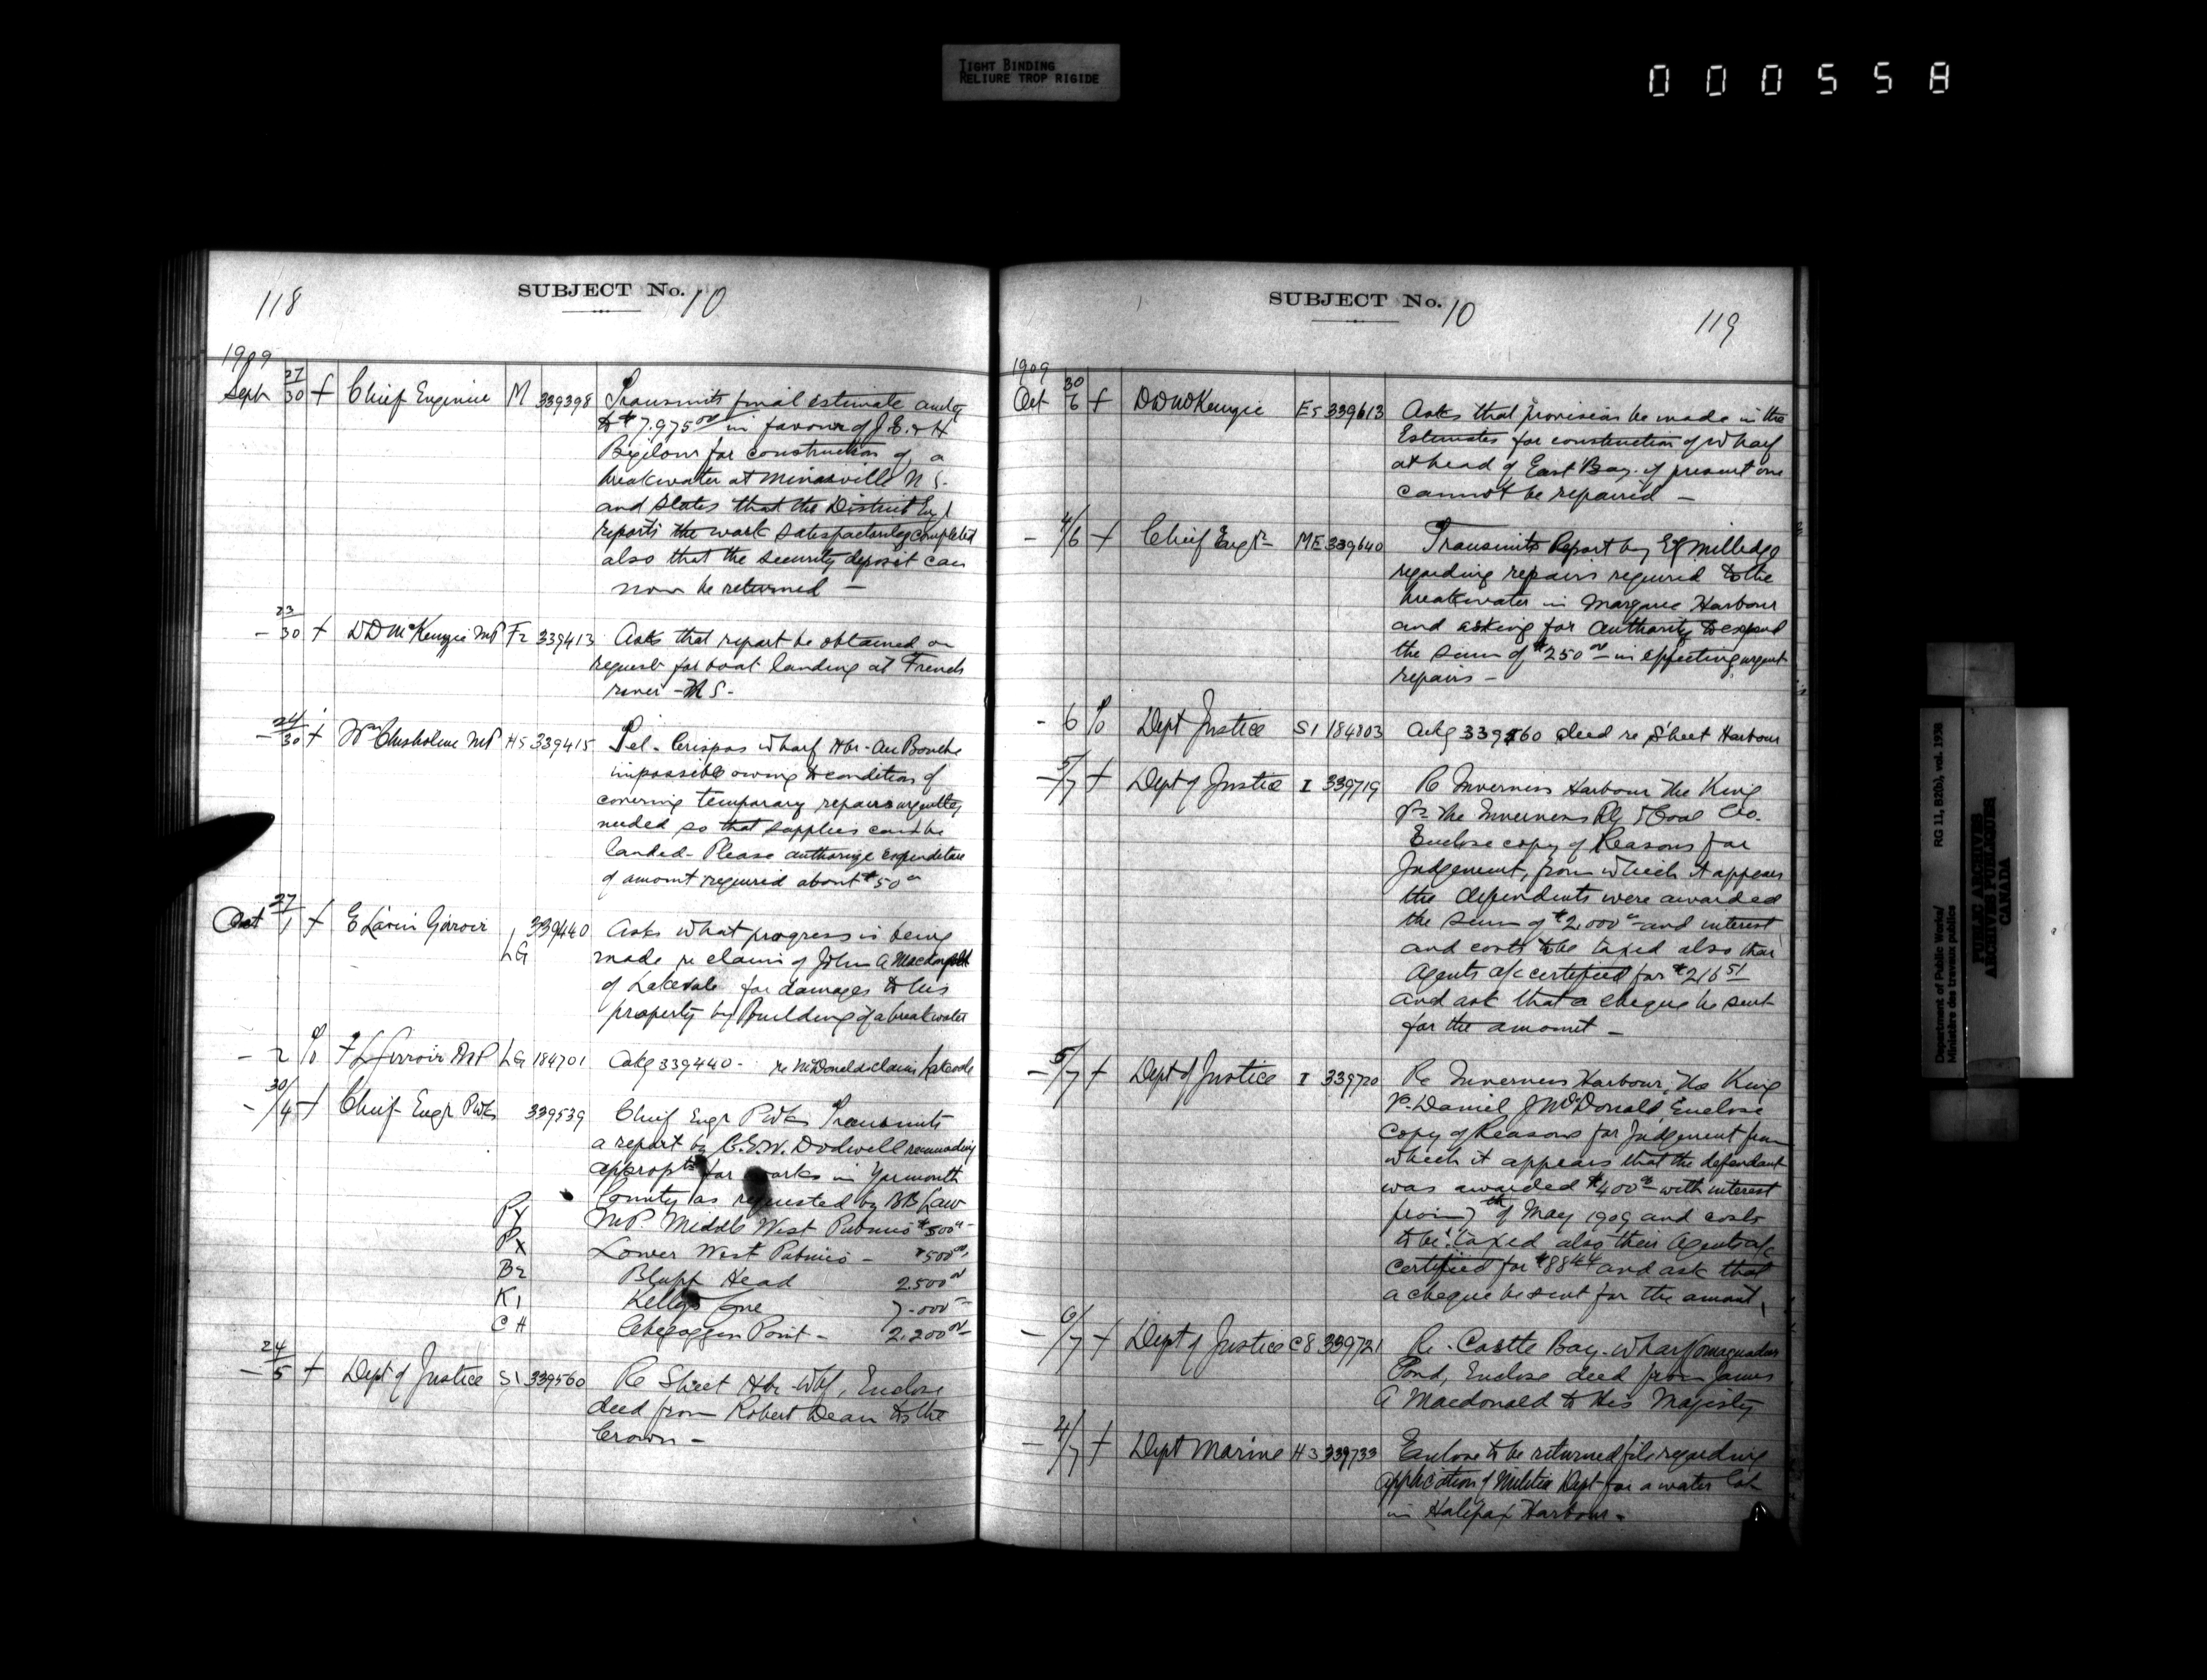 TIGHT BINDING
RELIURE TROP RIGIDE
000558
118
SUBJECT No. 10
1909
Sept 27/30 + Chief Engineer M 339398 Transmits final estimate amtg
to $7.975 00 in favour of J.E. & H
Bigelow for construction of a
breakwater at Minasville N S.
and states that the District Eng r
reports the work satisfactorily completed
also that the security deposit can
now be returned —
- 23/30 + D D McKenzie MP F2 339413 Asks that report be obtained on
request for boat landing at French
river - N S -
- 24/30 + Wm Chisholm MP H5 339415 Tel - Crispos wharf Hbr - Au Bouche
impossible owing to condition of
covering temporary repairs urgently
needed so that supplies can be
landed - Please authorize expenditure
of amount required about $50 00
Oct 27/1 + E Lavin Girroir LG 339440 Asks what progress is being
made re claim of John A Macdonald
of Lakevale for damages to his
property by building of a breakwater
- 2 % F L Girroir MP LG 184701 Ackg 339440 - re McDonalds claim Lakevale
- 30/4 + Chief Engr PWks 339539 Chief Engr PWks Transmits
a report by C.E.W. Dodwell recommending
appropts for works in Yarmouth
County as requested by BB Law
PX MP Middle West Pubnico $500 00
PX Lower West Pubnico - $500 00
B2 Bluff Head 2.500 00
K1 Kellys Cove 7.000 00
CH Chegoggin Point - 2.200 00
- 24/5 + Dept of Justice S1 339560 Re Sheet Hbr - Whf, Enclose
deed from Robert Dean to the
Crown -
SUBJECT No. 10
119
1909
Oct 30/6 + D D McKenzie E5 339613 Asks that provision be made in the
Estimates for construction of wharf
at head of East Bay - if present one
cannot be repaired -
- 4/6 + Chief Engr ME 339640 Transmits Report by EG Milledge
regarding repairs required to the
breakwater in Margaree Harbour
and asking for authority to expend
the sum of $250 00 in effecting urgent
repairs -
- 6 % Dept Justice S1 184803 Ackg 339560 deed re Sheet Harbour
- 5/7 + Dept of Justice I 339719 Re Inverness Harbour The King
vs The Inverness Rly & Coal Co.
Enclose copy of Reasons for
Judgement, from which it appears
the dependents were awarded
the sum of $2,000 00 and interest
and costs to be taxed also their
Agents a/c certified for $216 51
and ask that a cheque be sent
for the amount -
- 5/7 + Dept of Justice I 339720 Re Inverness Harbour, The King
vs. Daniel J McDonald, Enclose
copy of Reasons for Judgement from
which it appears that the defendant
was awarded $400 00 with interest
from 7th of May 1909 and costs
to be taxed also their Agents a/c
certified for $88 44 and ask that
a cheque be sent for the amount,
- 6/7 + Dept of Justice C8 339721 Re - Castle Bay - wharf
Pond, Enclose deed from James
A Macdonald to His Majesty
- 4/7 + Dept Marine H3 339733 Enclose to be returned file regarding
application of Militia Dept for a water lot
in Halifax Harbour -
Department of Public Works/
Ministère des travaux publics
RG 11, B2(b), vol. 1938
PUBLIC ARCHIVES
ARCHIVES PUBLIQUES
CANADA